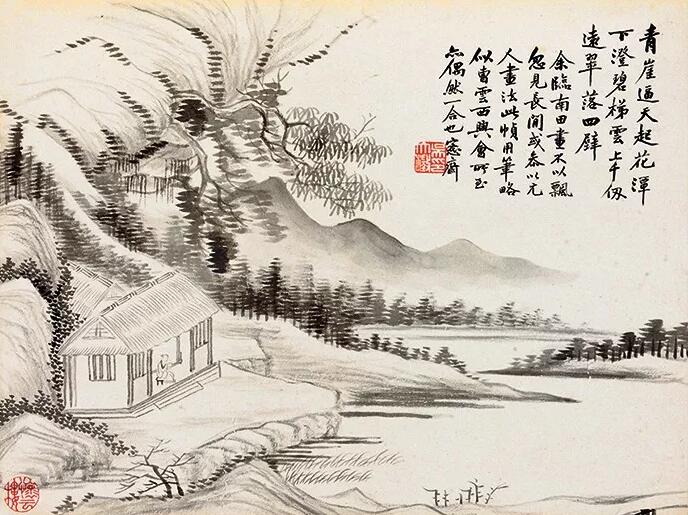 青崖逼天起花潭
下澄碧梯雲上千仞
遠翠落四壁
余臨南田畫不以飄
忽見長間或參以元
人畫法此幀用筆略
似曹雲西興會所至
亦偶然一合也愙齋